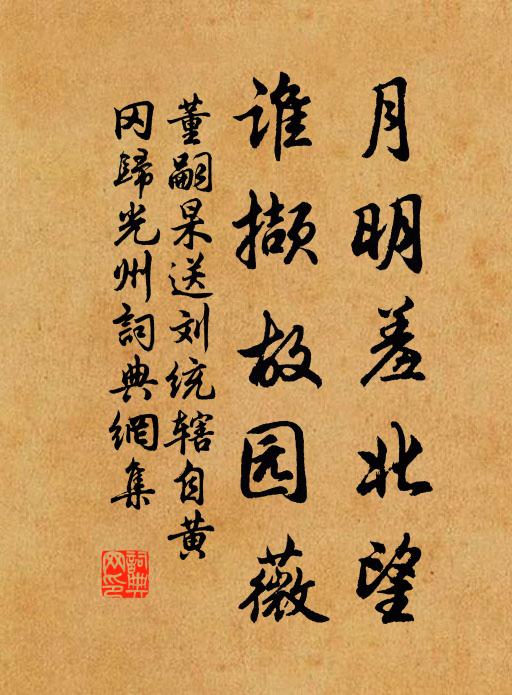 月明羞北望
谁撷故园薇
董嗣杲送刘统辖自黄
冈归光州词典网集
词典
网印